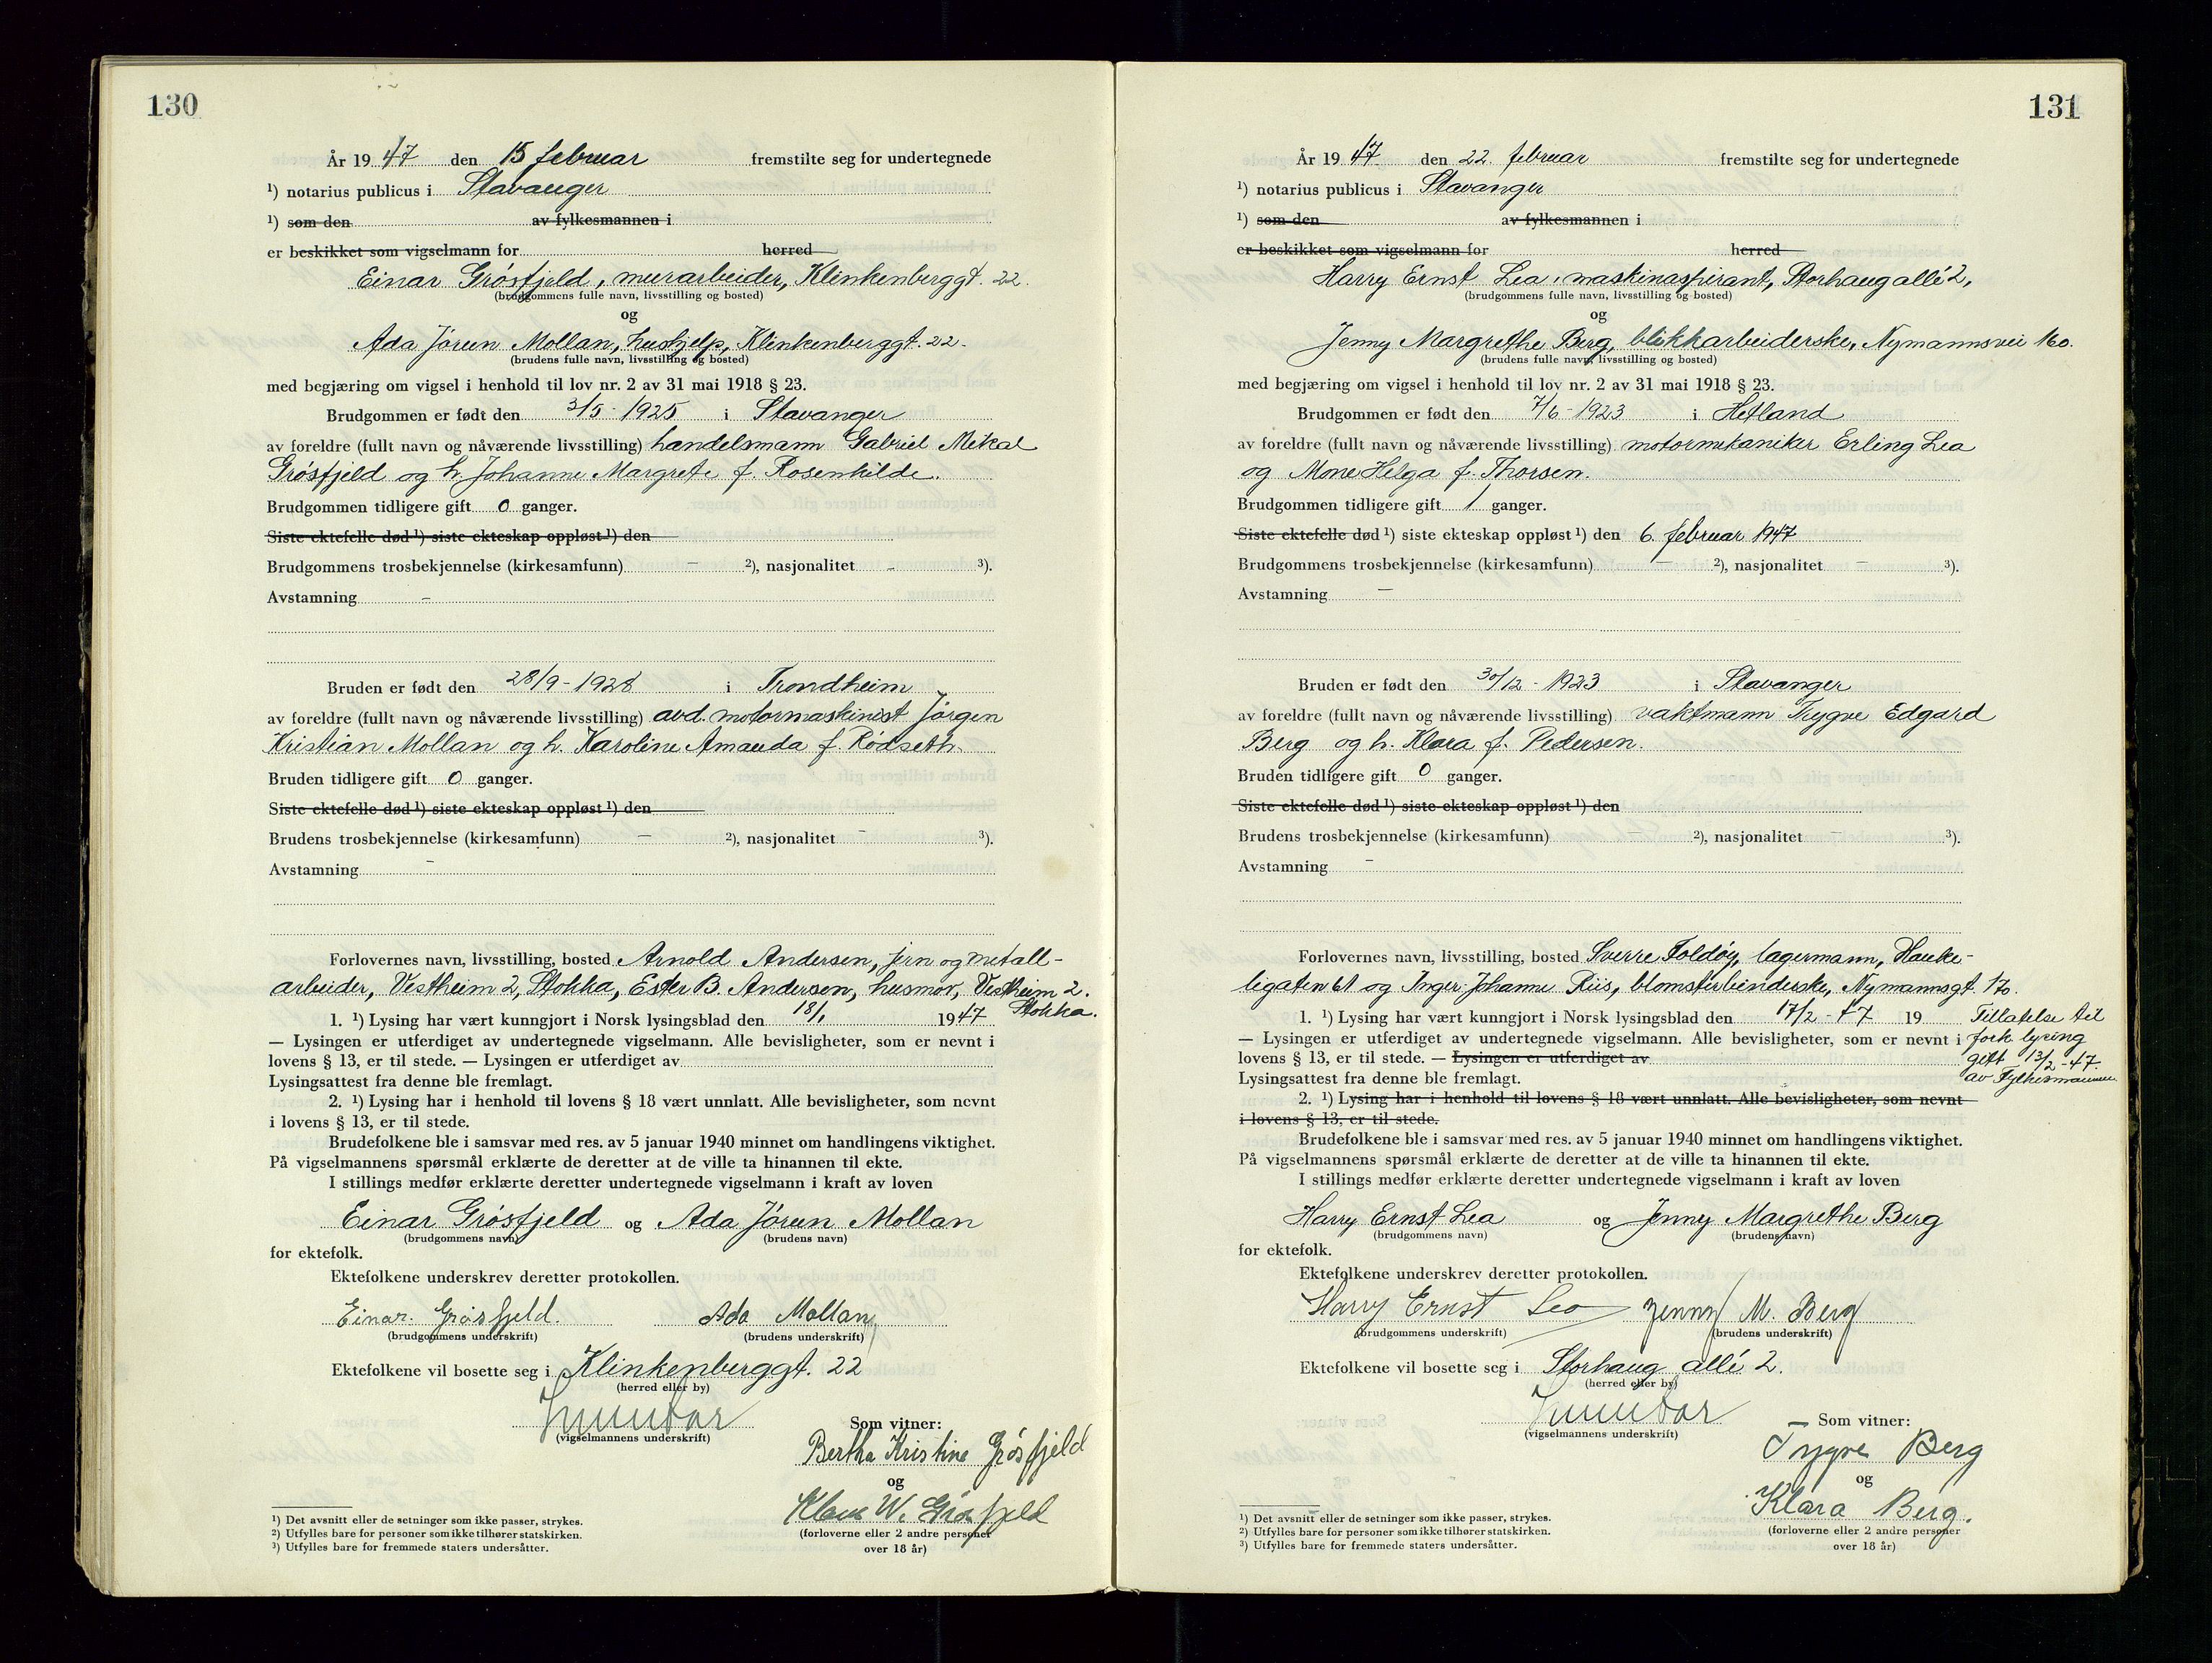 130
År 19 47 den 15 februar fremstilte seg for undertegnede
¹) notarius publicus i Stavanger
¹) som den av fylkesmannen i
er beskikket som vigselmann for herred
Einar Grósfjeld, murarbeider, Klinkenberggt. 22.
(brudgommens fulle navn, livsstilling og bosted)
og
Ada Jórun Mollan, hushjelp, Klinkenberggt. 22.
(brudens fulle navn, livsstilling og bosted)
med begjæring om vigsel i henhold til lov nr. 2 av 31 mai 1918 § 23.
Brudgommen er født den 3/5 - 1925 i Stavanger
av foreldre (fullt navn og nåværende livsstilling) handelsmann Gabriel Mikal
Grósfjeld og h. Johanne Margrete f. Rosenkilde.
Brudgommen tidligere gift 0 ganger.
Siste ektefelle død ¹) siste ekteskap oppløst ¹) den
Brudgommens trosbekjennelse (kirkesamfunn) – ²), nasjonalitet – ³).
Avstamning –
Bruden er født den 28/9 - 1928 i Trondheim
av foreldre (fullt navn og nåværende livsstilling) avd. motormaskinist Jórgen
Kristian Mollan og h. Karoline Amanda f. Ródseth.
Bruden tidligere gift 0 ganger.
Siste ektefelle død ¹) siste ekteskap oppløst ¹) den
Brudens trosbekjennelse (kirkesamfunn) – ²), nasjonalitet – ³).
Avstamning –
Forlovernes navn, livsstilling, bosted Arnold Andersen, jern og metall-
arbeider, Vestheim 2, Stokka, Ester B. Andersen, husmor, Vestheim 2.
Stokka.
1. ¹) Lysing har vært kunngjort i Norsk lysingsblad den 18/1 1947
— Lysingen er utferdiget av undertegnede vigselmann. Alle bevisligheter, som er nevnt i
lovens § 13, er til stede. — Lysingen er utferdiget av
Lysingsattest fra denne ble fremlagt.
2. ¹) Lysing har i henhold til lovens § 18 vært unnlatt. Alle bevisligheter, som nevnt
i lovens § 13, er til stede.
Brudefolkene ble i samsvar med res. av 5 januar 1940 minnet om handlingens viktighet.
På vigselmannens spørsmål erklærte de deretter at de ville ta hinannen til ekte.
I stillings medfør erklærte deretter undertegnede vigselmann i kraft av loven
Einar Grósfjeld og Ada Jórun Mollan
(brudgommens navn) (brudens navn)
for ektefolk.
Ektefolkene underskrev deretter protokollen.
Einar. Grósfjeld. Ada Mollan
(brudgommens underskrift) (brudens underskrift)
Ektefolkene vil bosette seg i Klinkenberggt. 22
(herred eller by)
(vigselmannens underskrift)
Som vitner:
Bertha Kristine Grósfjeld
og
Klaus W. Grósfjeld
(forloverne eller 2 andre personer
over 18 år)
¹) Det avsnitt eller de setninger som ikke passer, strykes.
²) Utfylles bare for personer som ikke tilhører statskirken.
³) Utfylles bare for fremmede staters undersåtter.
131
År 19 47. den 22. februar fremstilte seg for undertegnede
¹) notarius publicus i Stavanger
¹) som den av fylkesmannen i
er beskikket som vigselmann for herred
Harry Ernst Lea, maskinaspirant, Storhaug allé 2,
(brudgommens fulle navn, livsstilling og bosted)
og
Jenny Margrethe Berg, blikkarbeiderske, Nymannsvei 160.
(brudens fulle navn, livsstilling og bosted)
med begjæring om vigsel i henhold til lov nr. 2 av 31 mai 1918 § 23.
Brudgommen er født den 7/6 - 1923 i Hetland
av foreldre (fullt navn og nåværende livsstilling) motormekaniker Erling Lea
og Mone Helga f. Thorsen.
Brudgommen tidligere gift 1 ganger.
Siste ektefelle død ¹) siste ekteskap oppløst ¹) den 6. februar 1947
Brudgommens trosbekjennelse (kirkesamfunn) – ²), nasjonalitet – ³).
Avstamning –
Bruden er født den 30/12 - 1923 i Stavanger
av foreldre (fullt navn og nåværende livsstilling) vaktmann Trygve Edgard
Berg og h. Klara f. Pedersen.
Bruden tidligere gift 0 ganger.
Siste ektefelle død ¹) siste ekteskap oppløst ¹) den
Brudens trosbekjennelse (kirkesamfunn) – ²), nasjonalitet – ³).
Avstamning –
Forlovernes navn, livsstilling, bosted Sverre Foldóy, lagermann, Hauke-
ligaten 61 og Inger Johanne Riis, blomsterbinderske, Nymannsgt. 170.
1. ¹) Lysing har vært kunngjort i Norsk lysingsblad den 17/2 - 47 19 Tillatelse til
— Lysingen er utferdiget av undertegnede vigselmann. Alle bevisligheter, som er nevnt i fork. lysing
lovens § 13, er til stede. — Lysingen er utferdiget av gitt 13/2 - 47.
Lysingsattest fra denne ble fremlagt. av Fylkesmannen
2. ¹) Lysing har i henhold til lovens § 18 vært unnlatt. Alle bevisligheter, som nevnt
i lovens § 13, er til stede.
Brudefolkene ble i samsvar med res. av 5 januar 1940 minnet om handlingens viktighet.
På vigselmannens spørsmål erklærte de deretter at de ville ta hinannen til ekte.
I stillings medfør erklærte deretter undertegnede vigselmann i kraft av loven
Harry Ernst Lea og Jenny Margrethe Berg
(brudgommens navn) (brudens navn)
for ektefolk.
Ektefolkene underskrev deretter protokollen.
Harry Ernst Lea Jenny M. Berg
(brudgommens underskrift) (brudens underskrift)
Ektefolkene vil bosette seg i Storhaug allé 2.
(herred eller by)
(vigselmannens underskrift)
— Som vitner:
Trygve Berg
og
Klara Berg.
(forloverne eller 2 andre personer
over 18 år)
¹) Det avsnitt eller de setninger som ikke passer, strykes.
²) Utfylles bare for personer som ikke tilhører statskirken.
³) Utfylles bare for fremmede staters undersåtter.